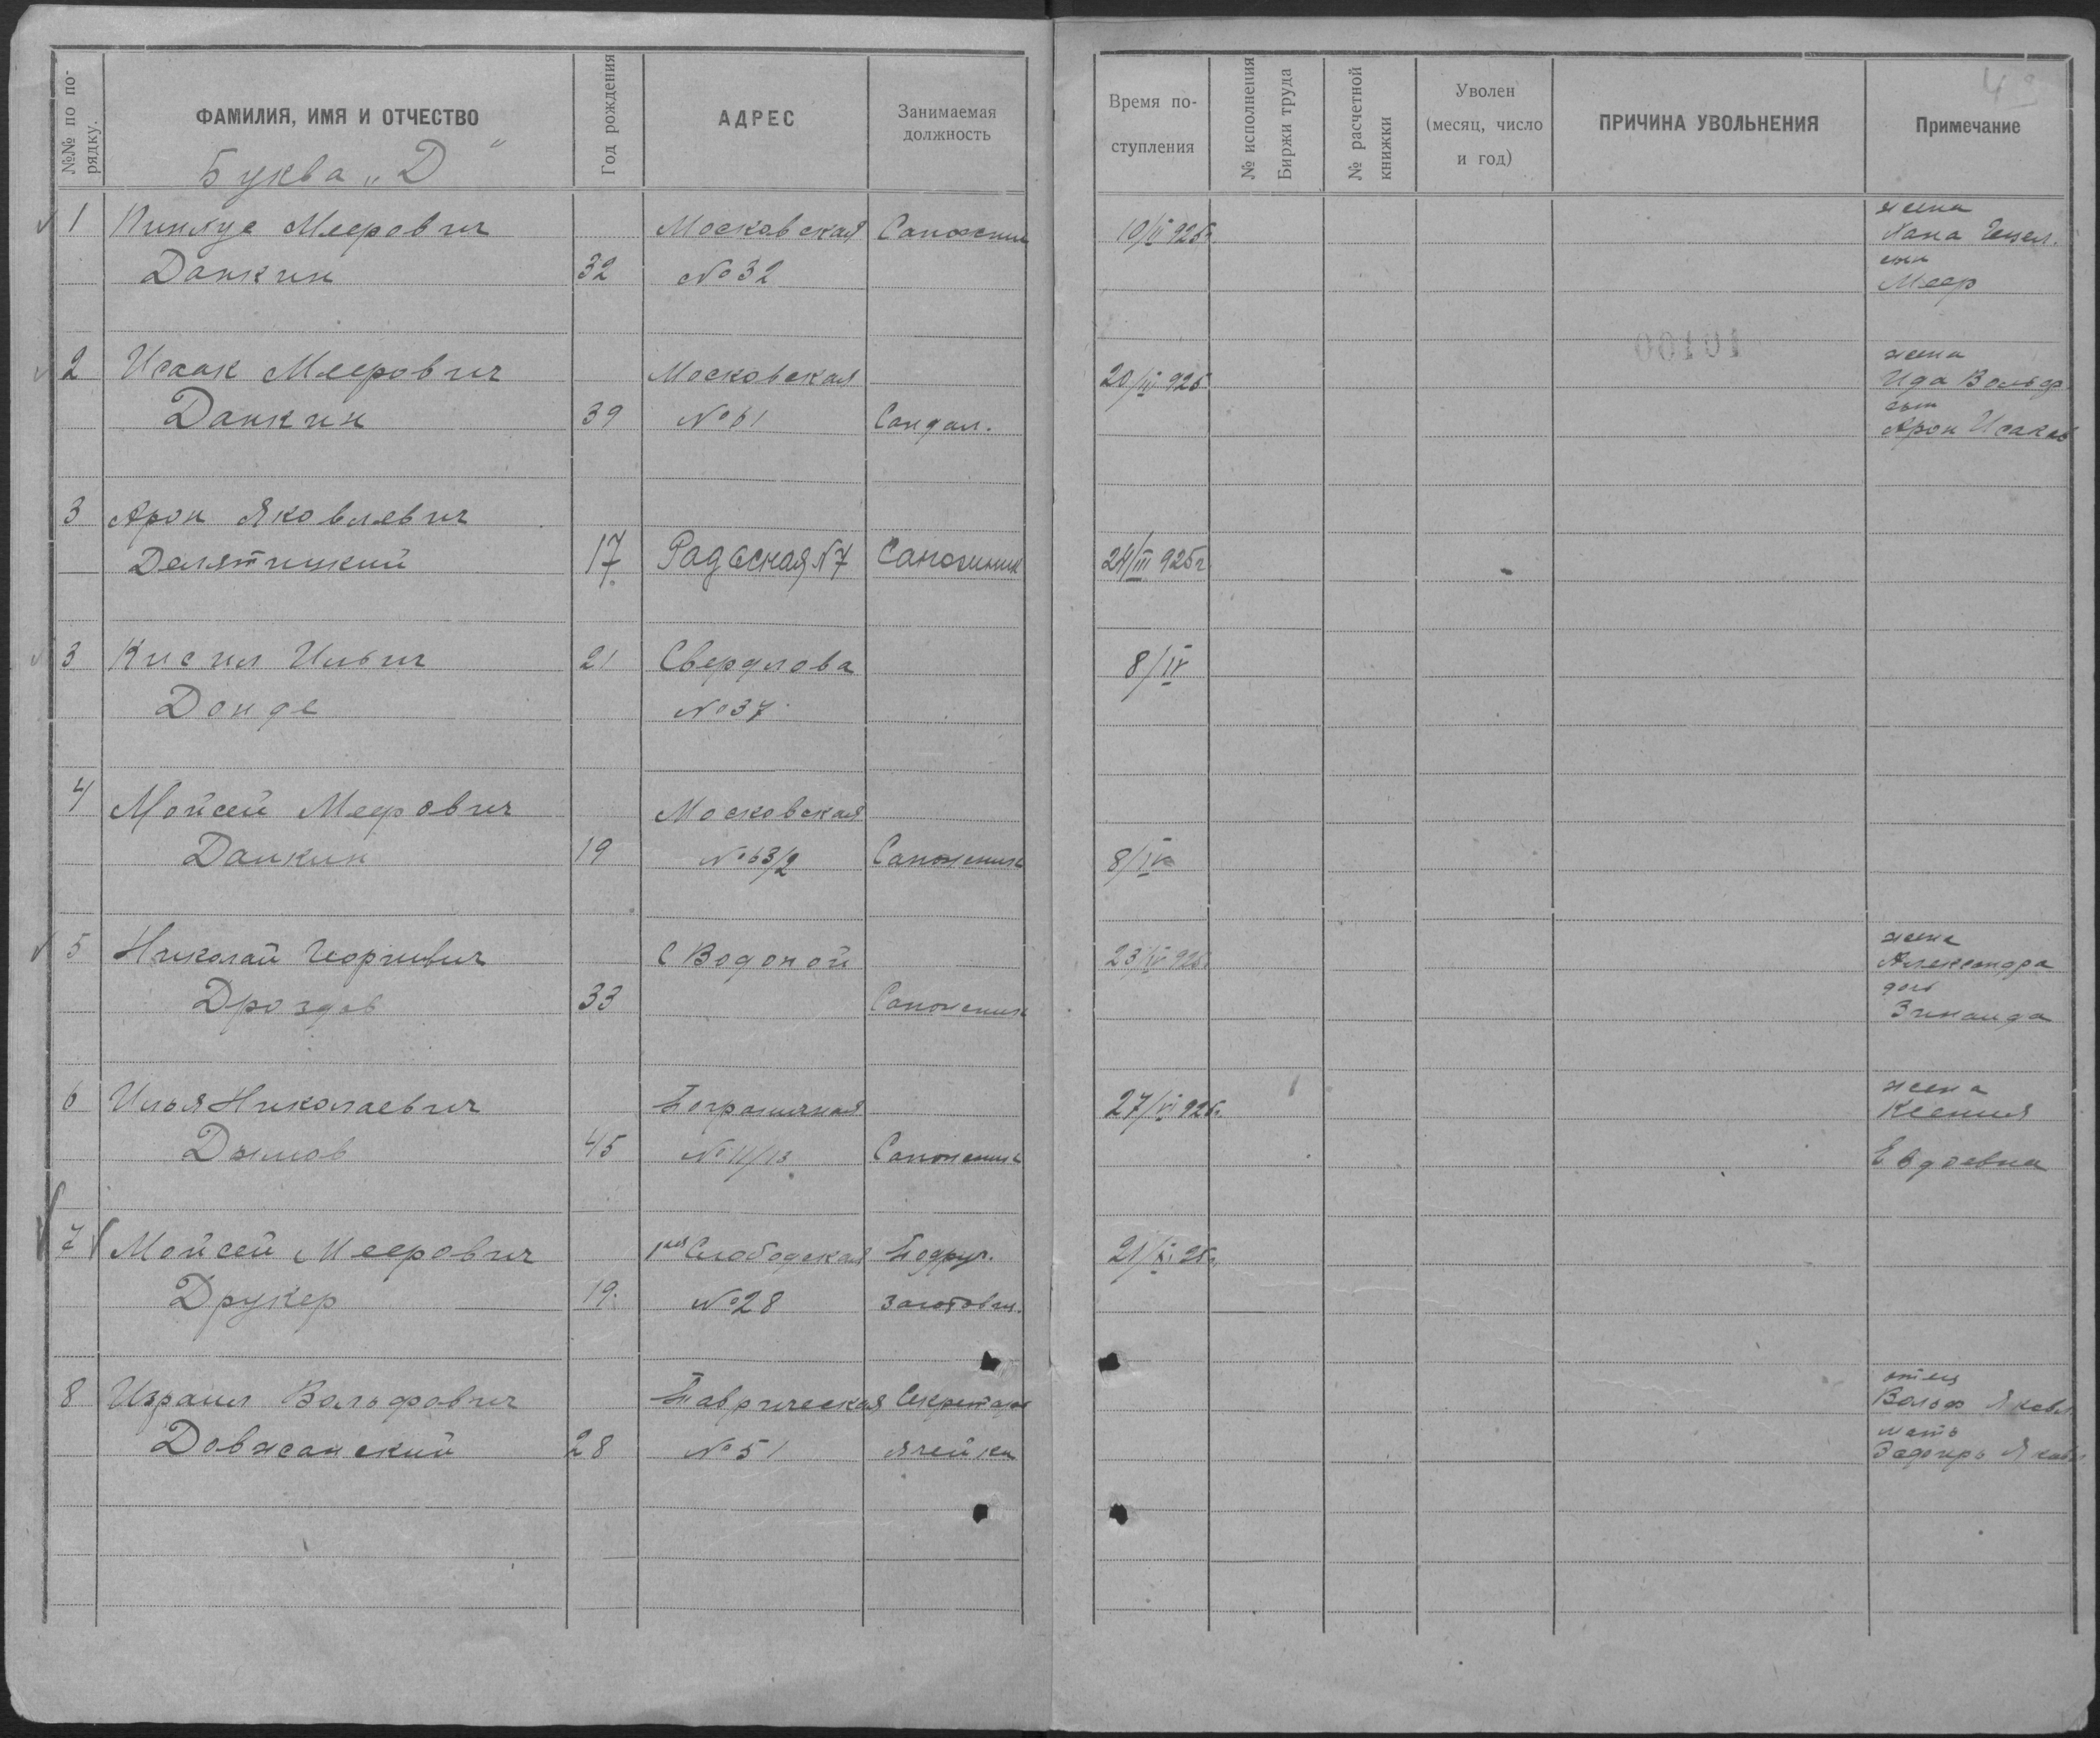 №№ по порядку.
ФАМИЛИЯ, ИМЯ И ОТЧЕСТВО
Буква „Д“
Год рождения
АДРЕС
Занимаемая должность
Время поступления
№ исполнения Биржи труда
№ расчетной книжки
Уволен (месяц, число и год)
ПРИЧИНА УВОЛЬНЕНИЯ
Примечание
1 Пинхус Меерович Московская Сапожник 10/II 925г жена
Данкин 32 №32 сын
Меер
00101
2 Исаак Меерович Московская 20/III 925 жена
Ида Вольф
Данкин 39 №61 Сандал. сын
Арон Исаков
3 Арон Яковлевич
Делятицкий 17 №7 Сапожник 24/III 925г
3 Кисил Ильич 21 Свердлова 8/IV
Донде №37
4 Мойсей Меерович Московская
Данкин 19 №63/2 Сапожник 8/IV
5 Николай Георгиевич С Водопой 23/IV 925. жена
Александра
Дроздов 33 Сапожник доч
Зинаида
6 Илья Николаевич Пограничная 27/VI 925. жена
Ксения
Дымов 45 №11/13 Сапожник
7 Мойсей Меерович 1ая Слободская Подруч. 21/X 25г.
Друкер 19. №28 заготовщ.
8 Израил Вольфович Таврическая Секретарь отец
Вольф Яковл.
Довжанский 28 №51 ячейки мать